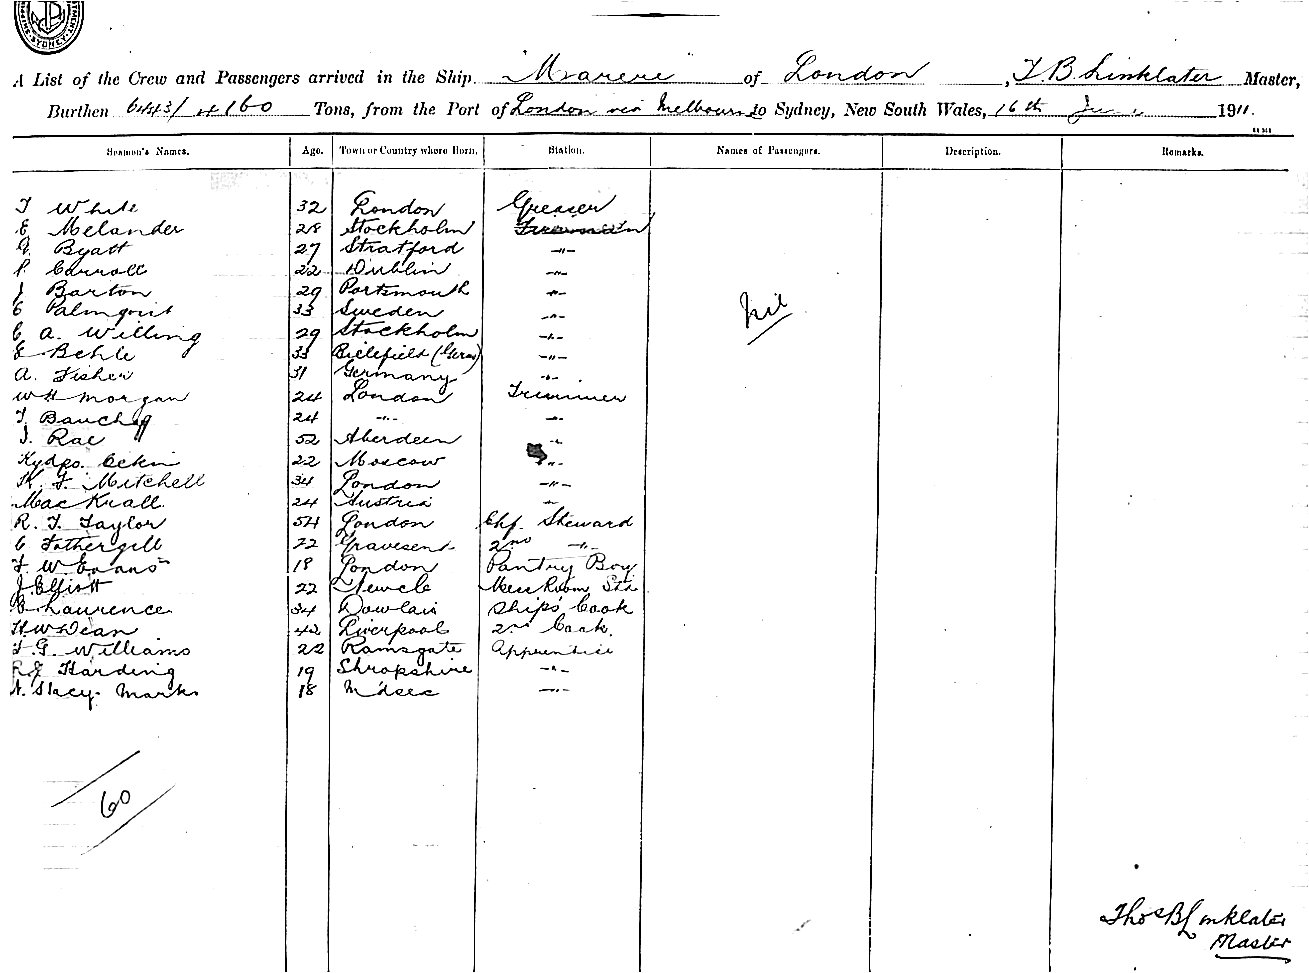 SYDNEY
A List of the Crew and Passengers arrived in the Ship. Marere of London, T. B. Linklater Master,
Burthen 6443/4160 Tons, from the Port of London via Melbourne to Sydney, New South Wales, 16th June 1911.
Seamen's Names. Age. Town or Country where Born. Station. Names of Passengers. Description. Remarks.
T White 32 London Greaser
E Melander 28 Stockholm Fireman
G. Byatt 27 Stratford -"-
P. Carroll 22 Dublin -"-
J Barton 29 Portsmouth -"-
C Palmqvist 33 Sweden -"-
C A. Willing 29 Stockholm -"-
E Behle 33 Bielefield (Germ) -"-
A. Fisher 31 Germany -"-
W H Morgan 24 London Trimmer
T. 24 -"- -"-
J. Rae 52 Aberdeen -"-
22 Moscow -"-
K. F. Mitchell 34 London -"-
Mac Krall 24 Austria -"-
R. T. Taylor 54 London Chf. Steward
C Fothergill 22 Gravesent 2nd -"-
F. W Evans 18 London Pantry Boy
J. Elliott 22 Newcle Mess Room Std
E Laurence 34 Dowlais Ships' Cook
H W Dean 42 Liverpool 2nd Cook.
F. G. Williams 22 Ramsgate Apprentice
R J Harding 19 Shropshire -"-
A. Stacy-Marks 18 M'dsex -"-
Nil
60
Thos B Linklater
Master